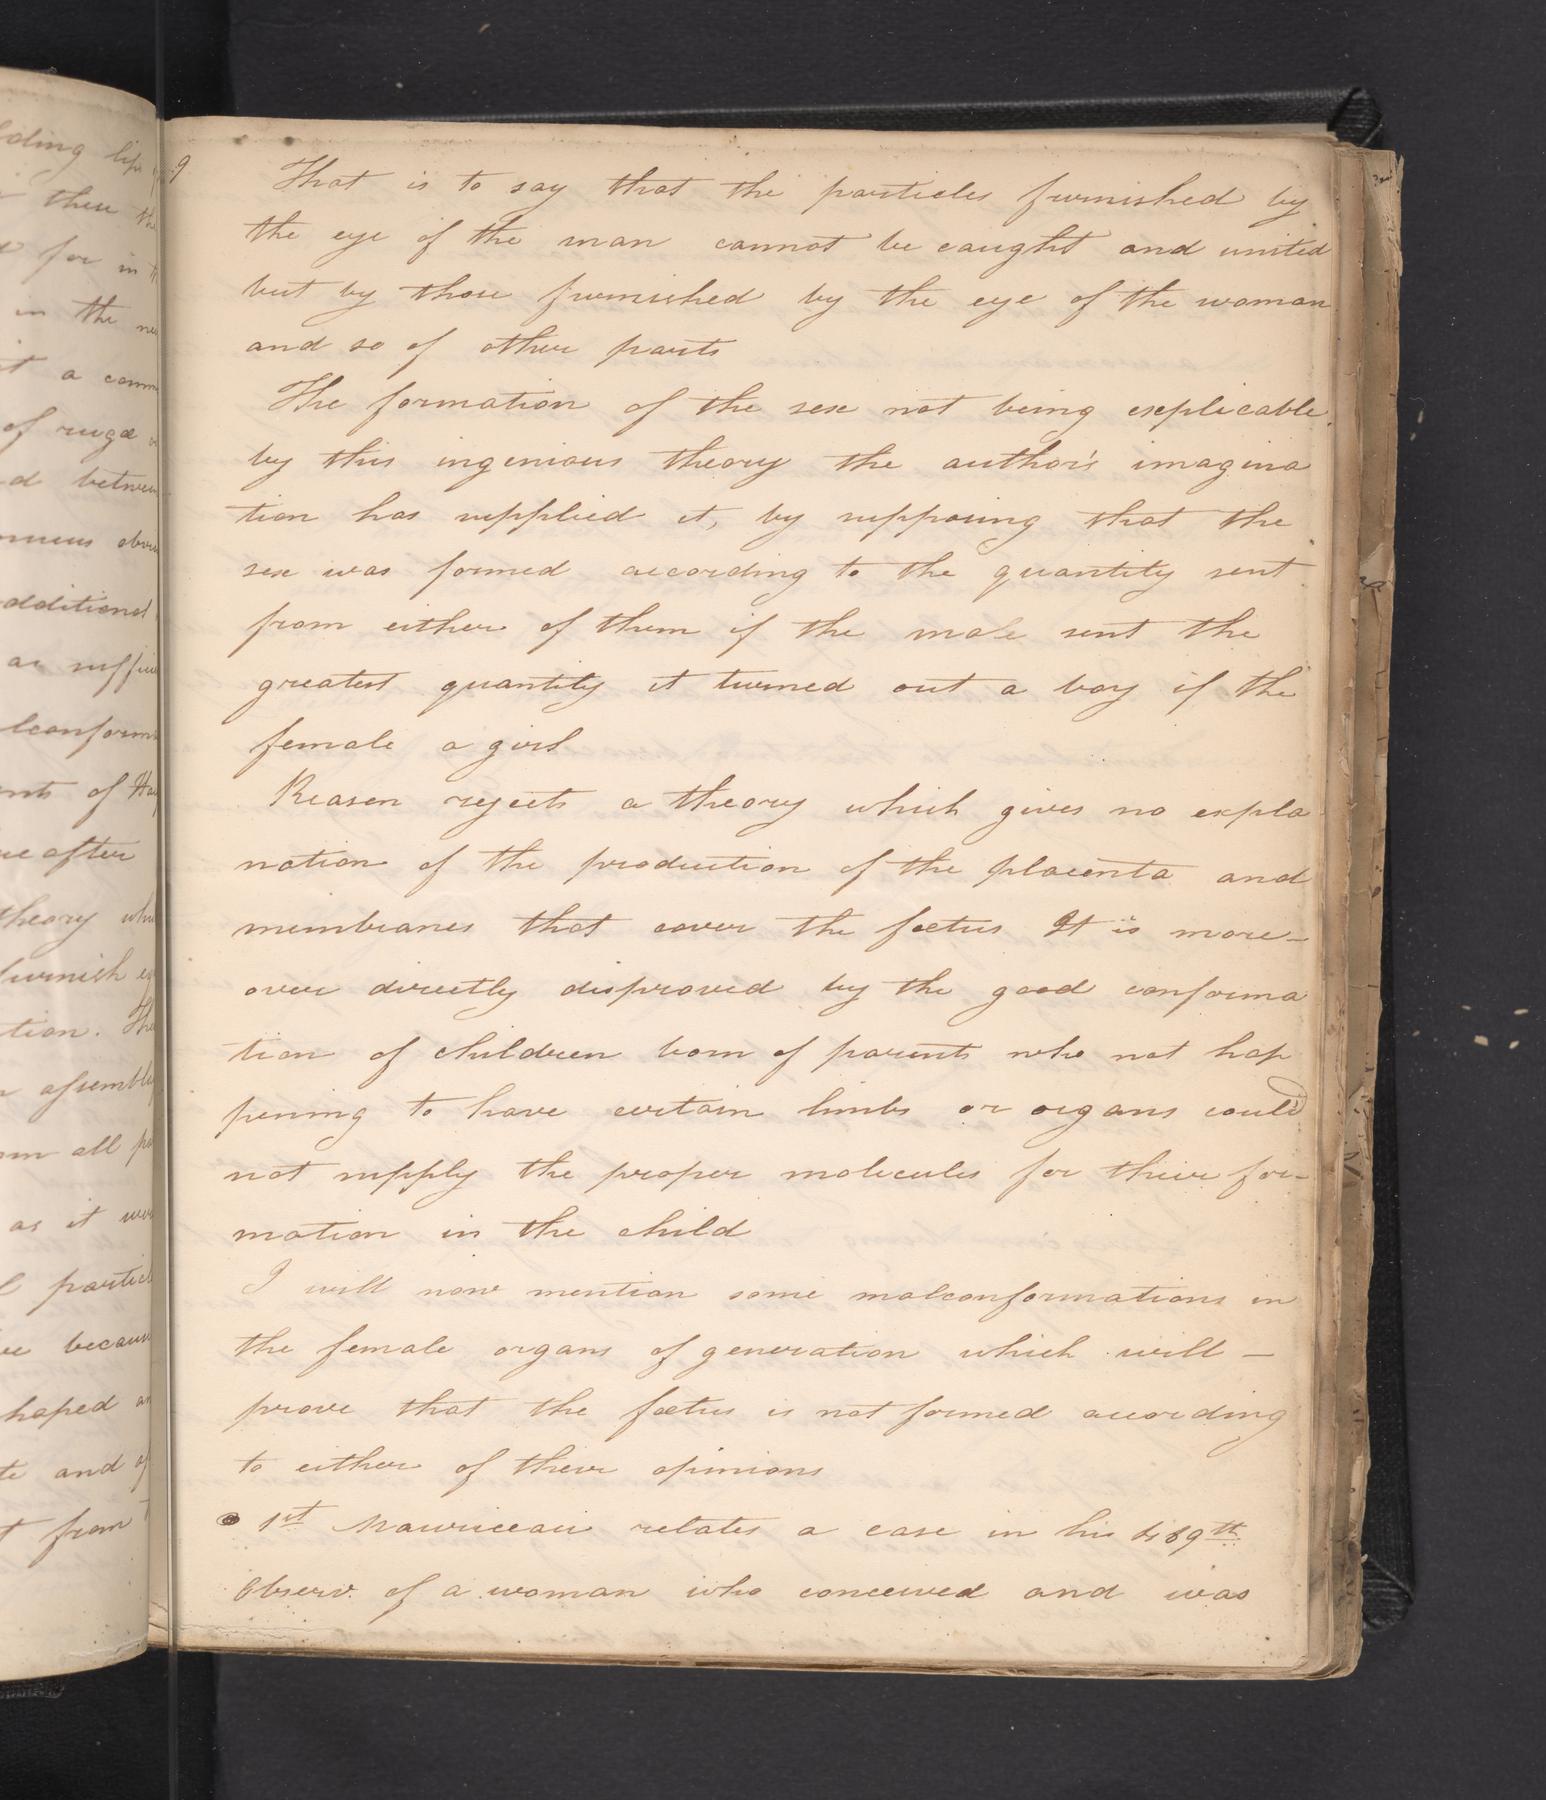 9
That is to say that the particles furnished by
the eye of the man cannot be caught and united
but by those furnished by the eye of the woman
and so of other parts
The formation of the sex not being explicable
by this ingenious theory the author's imagina
tion has supplied it, by supposing that the
sex was formed according to the quantity sent
from either of them if the male sent the
greatest quantity it turned out a boy if the
female a girl
Reason rejects a theory which gives no expla
nation of the production of the placenta and
membranes that cover the fœtus It is more-
over directly disproved by the good conforma
tion of children born of parents who not hap
pening to have certain limbs or organs could
not supply the proper molecules for their for-
mation in the child
I will now mention some malconformations in
the female organs of generation which will -
prove that the fœtus is not formed according
to either of their opinions
1st Mauriceau relates a case in his
Observ. of a woman who conceived and was
lding
these
for in
in the
a
of rugæ
d between
additional
as
nts of
after
theory
furnish
tion. The
assembly
all
as it
because
shaped
and of
from